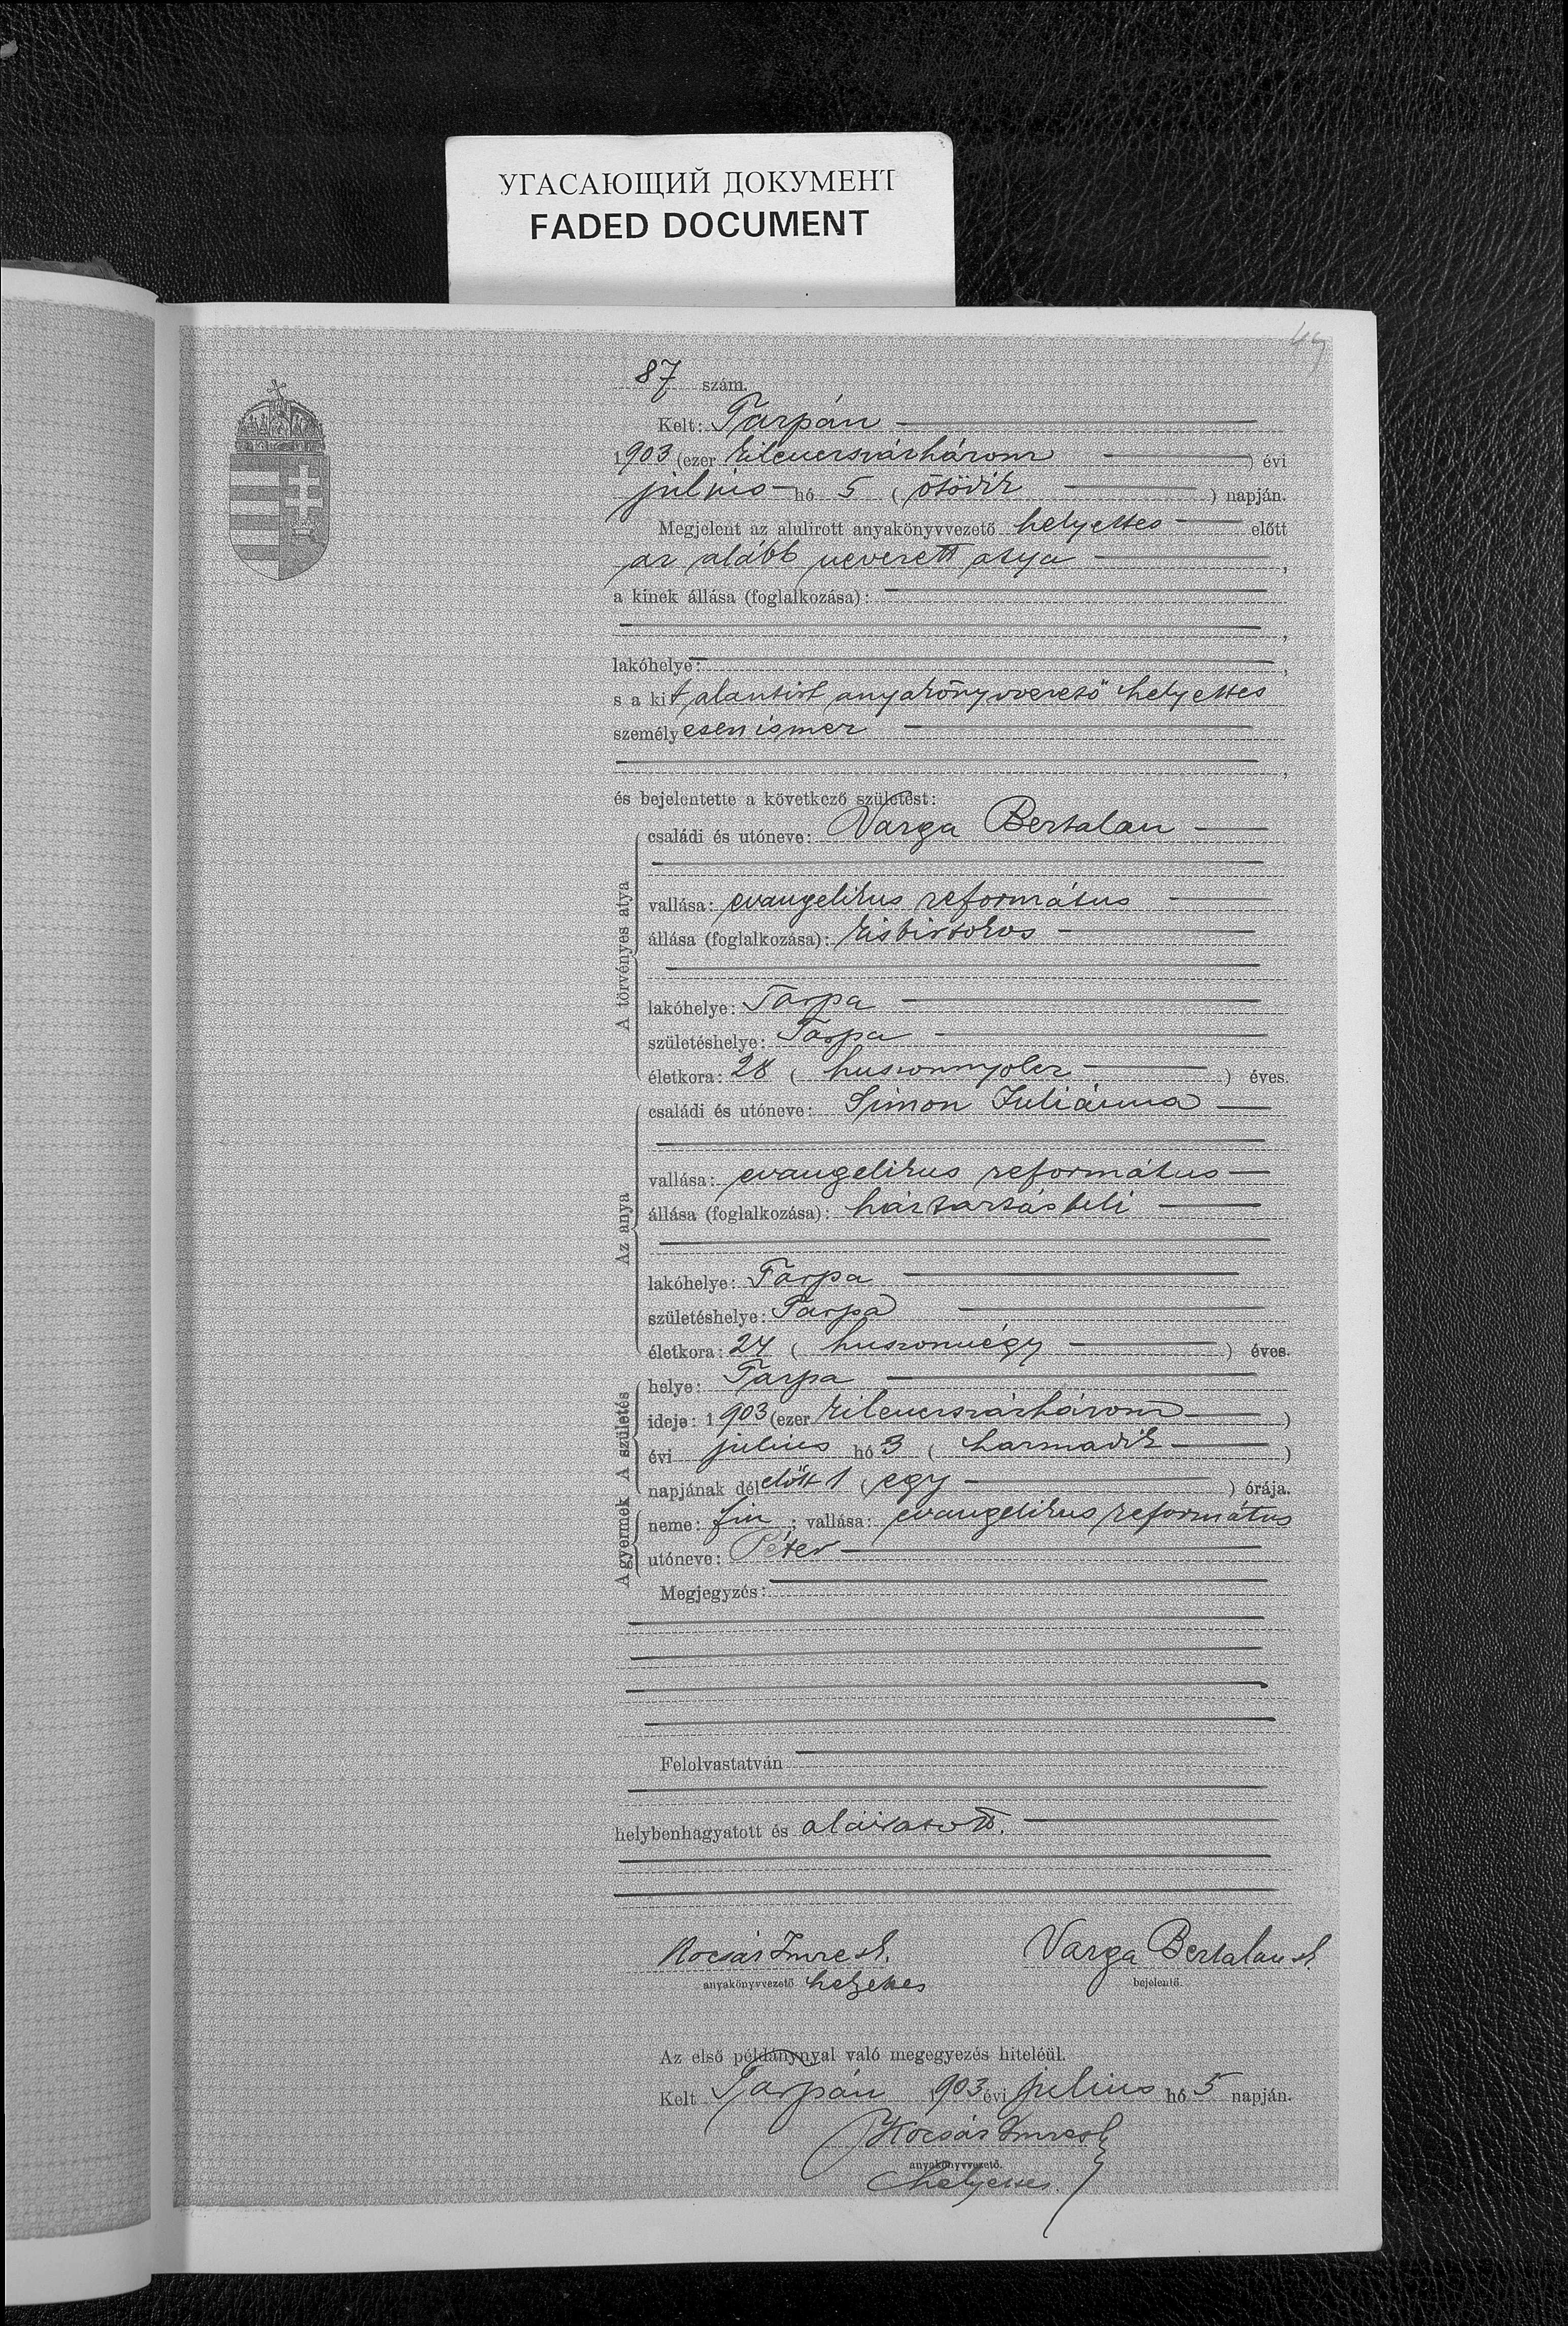 УГАСАЮЩИЙ ДОКУМЕНТ
FADED DOCUMENT
49
87 szám.
Kelt: Tarpán
1903 (ezer kilencszázhárom ) évi
julius hó 5 ( ötödik ) napján.
Megjelent az alulirott anyakönyvvezető helyettes előtt
az alább nevezett atya ,
a kinek állása (foglalkozása):
,
lakóhelye: ,
s a kit alantirt anyakönyvvezető helyettes
személyesen ismer
,
és bejelentette a következő születést:
A törvényes atya
családi és utóneve: Varga Bertalan
vallása: evangelikus református
állása (foglalkozása): kisbirtokos
lakóhelye: Tarpa
születéshelye: Tarpa
életkora: 28 ( huszonnyolcz ) éves.
Az anya
családi és utóneve: Simon Juliánna
vallása: evangelikus református
állása (foglalkozása): háztartásbeli
lakóhelye: Tarpa
születéshelye: Tarpa
életkora: 24 ( huszonnégy ) éves.
A születés
helye: Tarpa
ideje: 1903 (ezer kilencszázhárom )
évi julius hó 3 ( harmadik )
napjának délelőtt 1 ( egy ) órája.
A gyermek
neme: fiu ; vallása: evangelikus református
utóneve: Péter
Megjegyzés:
Felolvastatván
helybenhagyatott és aláiratott.
Kocsár Imre sk. Varga Bertalan sk
anyakönyvvezető helyettes bejelentő.
Az első példánynyal való megegyezés hiteléül.
Kelt Tarpán 1903 évi julius hó 5 napján.
Kocsár Imre sk
anyakönyvvezető.
helyettes